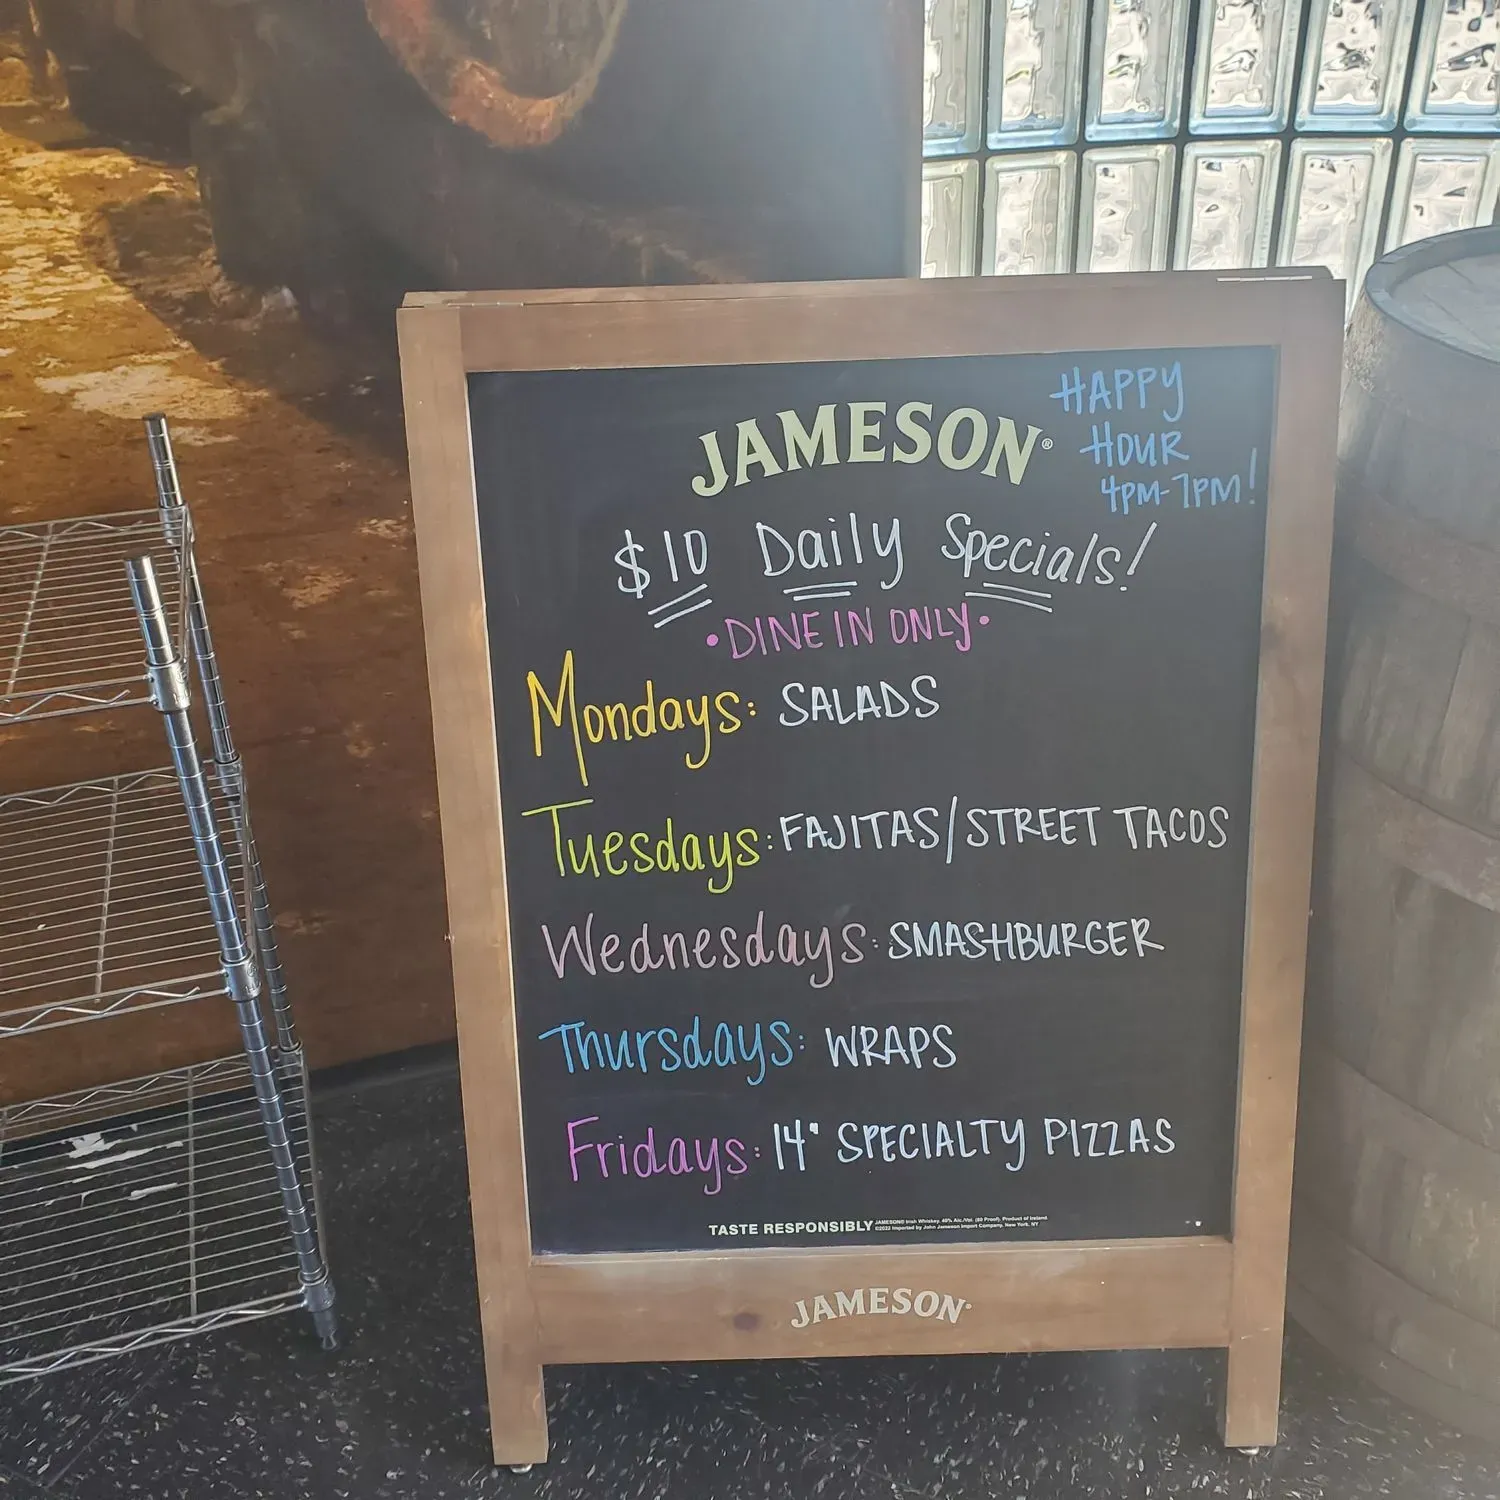 HAPPY
HOUR
4PM-7PM!
JAMESON®
$10 Daily Specials!
•DINE IN ONLY•
Mondays: SALADS
Tuesdays: FAJITAS/STREET TACOS
Wednesdays: SMASHBURGER
Thursdays: WRAPS
Fridays: 14" SPECIALTY PIZZAS
TASTE RESPONSIBLY JAMESON® Irish Whiskey. 40% Alc./Vol. (80 Proof). Product of Ireland.
©2022 Imported by John Jameson Import Company, New York, NY
JAMESON